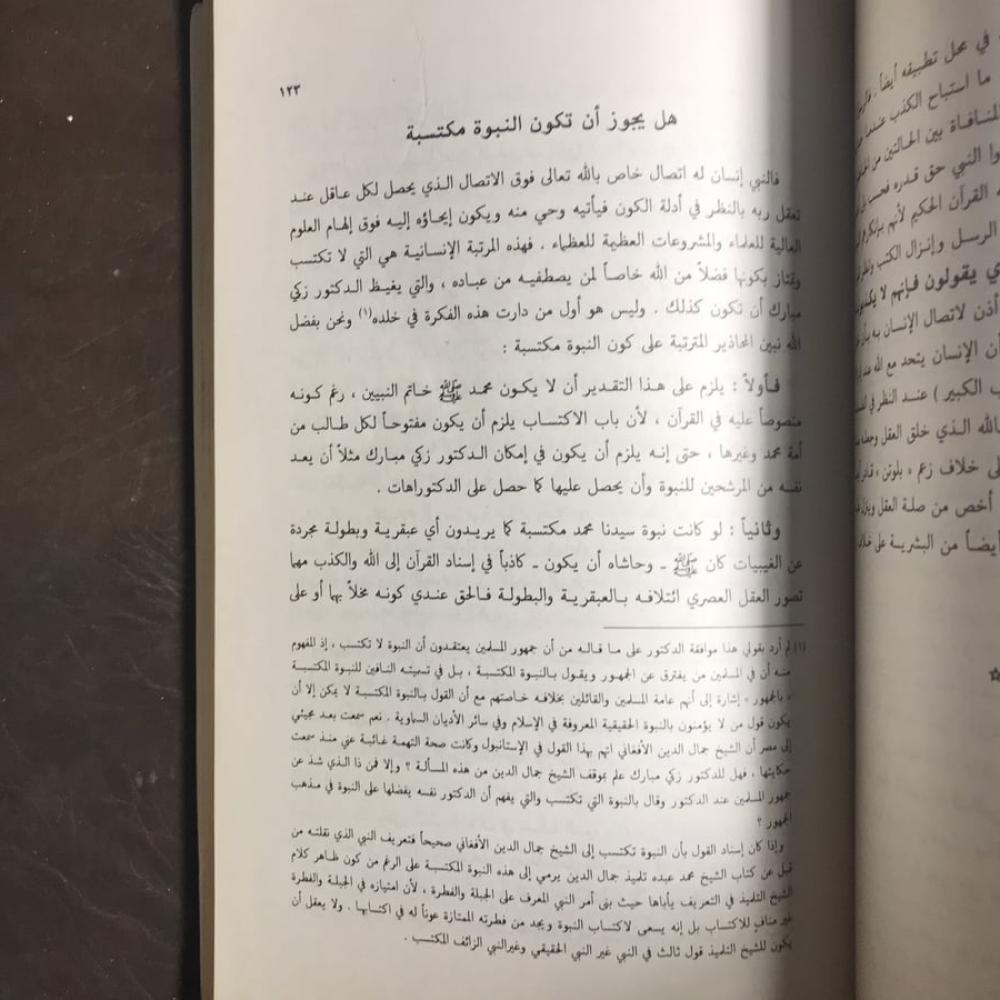 ١٢٣
هل يجوز أن تكون النبوة مكتسبة
فالنبي إنسان له اتصال خاص بالله تعالى فوق الاتصال الذي يحصل لكل عاقل عند
تعقل ربه بالنظر في أدلة الكون فيأتيه وحي منه ويكون إيحاؤه إليه فوق إلهام العلوم
العالية للعلماء والمشروعات العظيمة للعظماء . فهذه المرتبة الإنسانية هي التي لا تكتسب
وتمتاز بكونها فضلاً من الله خاصاً لمن يصطفيه من عباده ، والتي يغيظ الدكتور زكي
مبارك أن تكون كذلك . وليس هو أول من دارت هذه الفكرة في خلده(١) ونحن بفضل
الله نبين المحاذير المترتبة على كون النبوة مكتسبة :
فأولاً : يلزم على هذا التقدير أن لا يكون محمد ﷺ خاتم النبيين ، رغم كونه
منصوصاً عليه في القرآن ، لأن باب الاكتساب يلزم أن يكون مفتوحاً لكل طالب من
أمة محمد وغيرها ، حتى إنه يلزم أن يكون في إمكان الدكتور زكي مبارك مثلاً أن يعد
نفسه من المرشحين للنبوة وأن يحصل عليها كما حصل على الدكتوراهات .
وثانياً : لو كانت نبوة سيدنا محمد مكتسبة كما يريدون أي عبقرية وبطولة مجردة
عن الغيبيات كان ﷺ ـ وحاشاه أن يكون ـ كاذباً في إسناد القرآن إلى الله والكذب مهما
تصور العقل العصري ائتلافه بالعبقرية والبطولة فالحق عندي كونه مخلاً بهما أو على
(١) لم أرد بقولي هذا موافقة الدكتور على ما قاله من أن جمهور المسلمين يعتقدون أن النبوة لا تكتسب ، إذ المفهوم
منه أن في المسلمين من يفترق عن الجمهور ويقول بالنبوة المكتسبة ، بل في تسميته النافين للنبوة المكتسبة
« بالجمهور » إشارة إلى أنهم عامة المسلمين والقائلين بخلافه خاصتهم مع أن القول بالنبوة المكتسبة لا يمكن إلا أن
يكون قول من لا يؤمنون بالنبوة الحقيقية المعروفة في الإسلام وفي سائر الأديان السماوية . نعم سمعت بعد مجيئي
إلى مصر أن الشيخ جمال الدين الأفغاني اتهم بهذا القول في الإستانبول وكانت صحة التهمة غائبة عني منذ سمعت
حكايتها ، فهل للدكتور زكي مبارك علم بموقف الشيخ جمال الدين من هذه المسألة ؟ وإلا فمن ذا الذي شذ عن
جمهور المسلمين عند الدكتور وقال بالنبوة التي تكتسب والتي يفهم أن الدكتور نفسه يفضلها على النبوة في مذهب
الجمهور ؟
وإذا كان إسناد القول بأن النبوة تكتسب إلى الشيخ جمال الدين الأفغاني صحيحاً فتعريف النبي الذي نقلته من
قبل عن كتاب الشيخ محمد عبده تلميذ جمال الدين يرمي إلى هذه النبوة المكتسبة على الرغم من كون ظاهر كلام
الشيخ التلميذ في التعريف يأباها حيث بنى أمر النبي المعرف على الجبلة والفطرة ، لأن امتيازه في الجبلة والفطرة
غير مناف للاكتساب بل إنه يسعى لاكتساب النبوة ويجد من فطرته الممتازة عوناً له في اكتسابها . ولا يعقل أن
يكون للشيخ التلميذ قول ثالث في النبي غير النبي الحقيقي وغير النبي الزائف المكتسب .
في محل تطبيقه أيضاً .
ما استباح الكذب عندما
المنافاة بين الحالتين من
وا النبي حق قدره
القرآن الحكيم لأنهم
الرسل وإنزال الكتب
ي يقولون فإنهم لا
اذن لاتصال الإنسان به
أن الإنسان يتحد مع الله
ب الكبير ) عند النظر في
بالله الذي خلق العقل
لى خلاف زعم « بلوتن »
أخص من صلة العقل
أيضاً من البشرية على